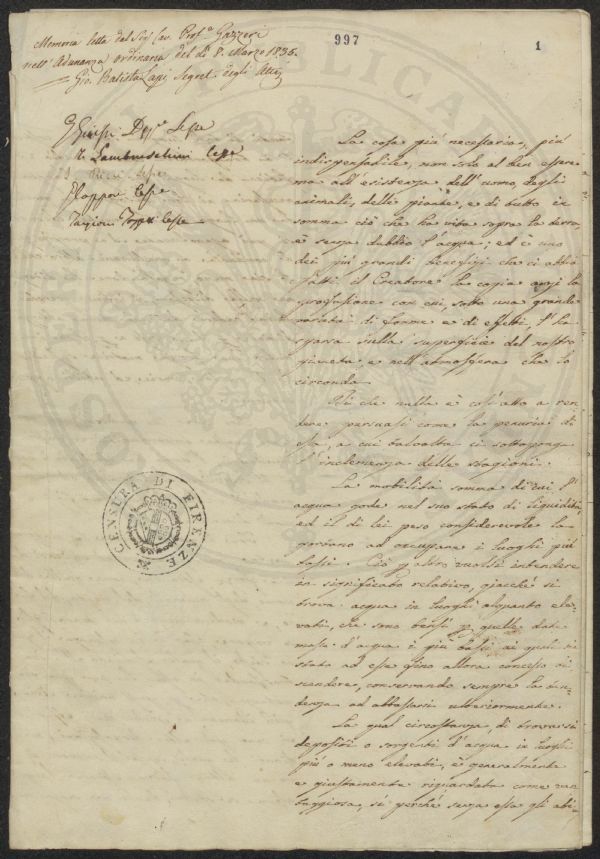 Memoria letta dal Sig. Cav. Prof.e Gazzeri
nell'Adunanza ordinaria del dì 8. Marzo 1835.
Gio. Batista Lapi Segret. degli Atti
997
1
Lambruschini
Ricci
Targioni Tozz.
La cosa più necessaria, più
indispensabile, non solo al ben essere
ma all'esistenza dell'uomo, degli
animali, delle piante, e di tutto in
somma ciò che ha vita sopra la terra,
è senza dubbio l'acqua; ed è uno
dei più grandi benefizi che ci abbia
fatti il Creatore la copia anzi la
profusione con cui, sotto una grande
varietà di forme e di effetti, l'ha
sparsa sulla superficie del nostro
pianeta e nell'atmosfera che lo
circonda.
Di che nulla è così atto a ren-
dere persuasi come la penuria di
essa, a cui talvolta ci sottopone
l'inclemenza delle stagioni.
La mobilità somma di cui l'
acqua gode nel suo stato di liquidità,
ed il di lei peso considerevole la
portano ad occupare i luoghi più
bassi. Ciò p altro vuolsi intendere
in significato relativo, giacché si
trova acqua in luoghi alquanto ele-
vati, che sono bensì p quelle date
masse d'acqua i più bassi ai quali sia
stato ad esse fino allora concesso di
scendere, conservando sempre la ten-
denza ad abbassarsi ulteriormente.
La qual circostanza, di trovarsi
depositi o sorgenti d'acqua in luoghi
più o meno elevati, è generalmente
e giustamente riguardata come van-
taggiosa, sì perché senza essa gli abi-
CENSURA DI FIRENZE